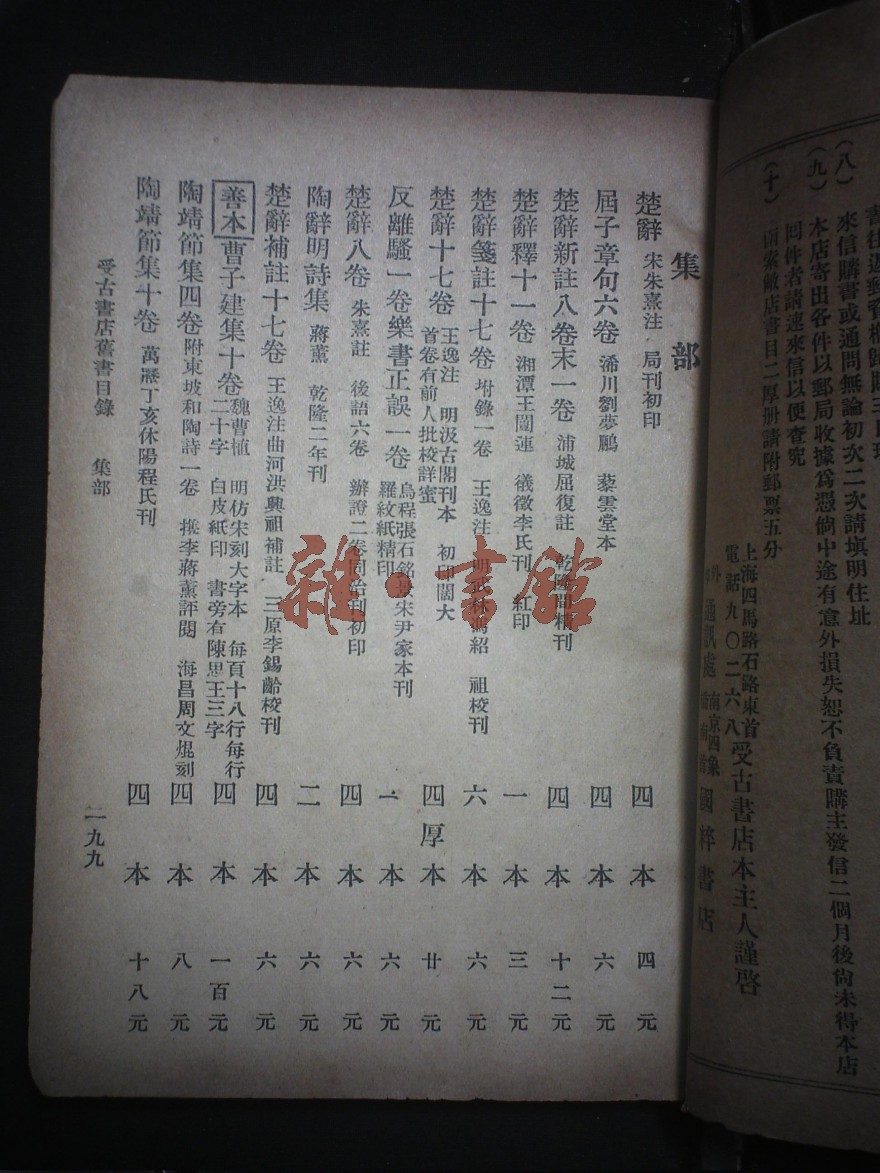 書往返郵費概歸購
(八) 來信購書或通問無論初次二次請塡明住址
(九) 本店寄出各件以郵局收據爲憑倘中途有意外損失恕不負責購主發信二個月後尙未得本店
回件者請速來信以便查究
(十) 函索敝店書目二厚册請附郵票五分
上海四馬路石路東首受古書店本主人謹啓
電話九〇二六八
通訊處 南京四象 國粹書店
集部
楚辭 宋朱熹注 局刊初印 四本 四元
屈子章句六卷 浠川劉夢鵬 藜雲堂本 四本 六元
楚辭新註八卷末一卷 浦城屈復註 乾隆間精刊 四本 十二元
楚辭釋十一卷 湘潭王闓運 儀徵李氏刊 紅印 一本 三元
楚辭箋註十七卷 坿錄一卷 王逸注 明武林馮紹 祖梭刊 六本 六元
楚辭十七卷 王逸注 明汲古閣刊本 初印闊大 首卷有前人批校詳蜜 四厚本 廿元
反離騷一卷樂書正誤一卷 烏程張石銘景宋尹家本刊 羅紋紙精印 一本 六元
楚辭八卷 朱熹註 後語六卷 辦證二卷同治刊初印 四本 六元
陶辭明詩集 蔣薰 乾隆二年刊 二本 六元
楚辭補註十七卷 王逸注曲河洪興祖補註 三原李錫齡梭刊 四本 六元
善本 曹子建集十卷 魏曹植 明仿宋刻大字本 每頁十八行每行二十字 白皮紙印 書旁有陳思王三字 四本 一百元
陶靖節集四卷 附東坡和陶詩一卷 携李蔣薰評閱 海昌周文焜刻 四本 八元
陶靖節集十卷 萬曆丁亥休陽程氏刊 四本 十八元
受古書店舊書目錄 集部
二九九
雜·書館